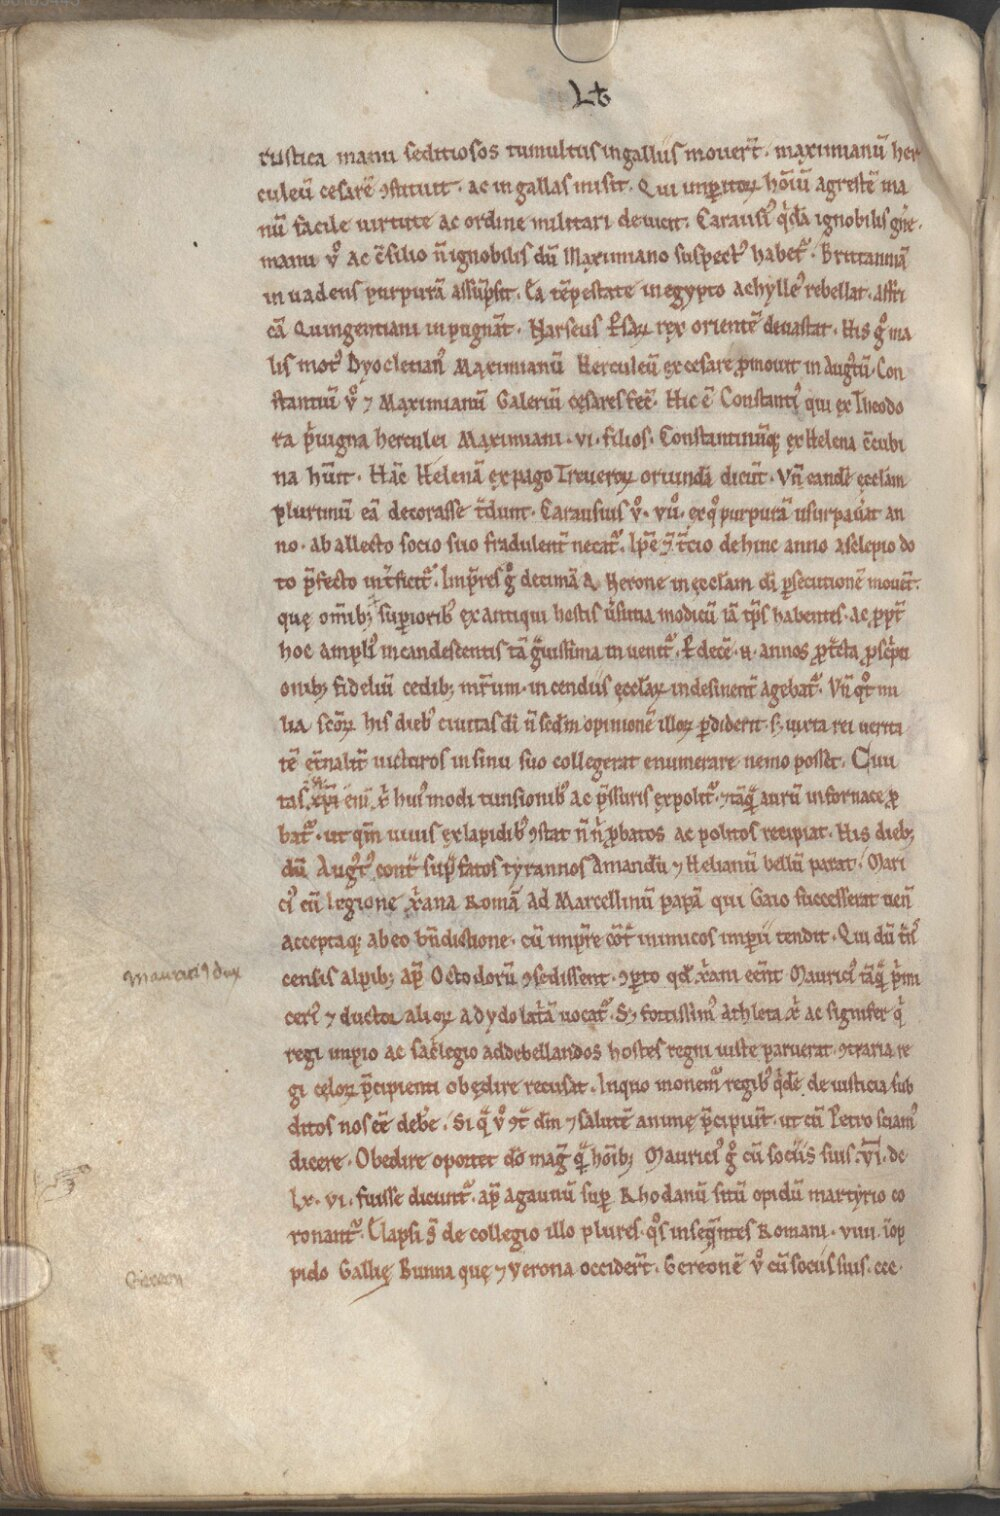 Lt
rustica manu seditiosos tumultus in galliis mouer̄t. maximianū her
culeū cesarē ꝯstituit. ac in gallas misit. Qui imꝑitoꝝ hoīū agrestē ma
nū facile uirtute ac ordine militari deuicit. Carausiꝰ q̇dā ignobilis gn̄e.
manu v̊ ac ꝯsilio n̄ ignobilis dū Maximiano suspectꝰ habet᷑. Brittanniā
inuadens purpurā assūpsit. Ea tēpestate in egypto achylleꝰ rebellat. affri
cā Quingentiani inpugnāt. Narseus ꝑsaꝝ rex orientē deuastat. His g̊ ma
lis motꝰ Dyocletianꝰ Maximianū Herculeū ex cesare ꝓmouit in Augꝰtū. Con
stantiū v̊ ⁊ Maximianū Galeriū cęsares fec̄. Hic ē Constantiꝰ qui ex Theodo
ra p̄uigna herculei Maximiani .vi. filios. Constantinūq; ex Helena ꝯcubi
na hūit. Hāc Helenā ex pago Treueroꝝ oriundā dicūt. Vn̄ eandē ęcclam
plurimū eā decorasse t̄dunt. Carausius v̊ .vii̊. ex q̊ purpurā usurpauat an
no. ab allecto socio suo fradulent̄ necat᷑. Ip̄e ⁊ t̄cio dehinc anno asclepio do
to p̄fecto int̄ficit᷑. Imp̄res g̊ decimā a Nerone in ęcclam dī ꝑsecutionē mouēt.
quę om̄ib; suꝑioribꝰ ex antiqui hostis uersutia modicū iā tp̄s habentes. ac ꝓpt̄
hoc ampliꝰ incandescentis tā g̃uissima inuenit᷑. Per decē .ii. annos ꝓtecta ꝓsc̄pti
onib; fideliū cedib; mr̄um. incendiis ęccl̄aꝝ indesinent̄ agebat᷑. Vn̄ qot mi
lia sc̄oꝝ his diebꝰ ciuitas dī n̄ sc̄dm opinionē illoꝝ ꝑdiderit. s; iuxta rei uerita
tē et̄nalit̄ uicturos in sinu suo collegerat enumerare nemo posset. Ciui
tas xp̄i enī x̄ huiꝰmodi tunsionibꝰ ac p̄ssuris expolit᷑. ⁊ tāq̃ aurū in fornace ꝓ
bat᷑. ut qm̄ uiuis ex lapidibꝰ ꝯstat n̄ n̄ ꝓbatos ac politos recipiat. His dieb;
dū Augꝰtꝰ cont̃ sup̃fatos tyrannos Amandū ⁊ Helianū bellū parat. Mari
ciꝰ cū legione x̄ana Romā ad Marcellinū papā qui Gaio successerat uen̄
acceptaq; ab eo bn̄dictione. cū imp̄re cōt̃ inimicos imperii tendit. Qui dū t̃ns
censis alpib; ap̄ Octodorū ꝯsedissent. ꝯꝑto qd̄ x̄ani ecēnt Mauriciꝰ tāq̃ p̄mi
ceriꝰ ⁊ ductor alioꝝ ad ydolat̄ā uocat᷑. S; fortissimꝰ athleta x̄ ac signifer q̇
regi impio ac sac̄legio ad debellandos hostes regni iuste paruerat. ꝯt̃aria re
gi cęloꝝ p̄cipienti obędire recusat. Inquo monem᷑ regibꝰ q̇dē de iusticia sub
ditos nos eē debere. Si q̃ v̊ ꝯt̃ dm̄ ⁊ salutē animę p̄cipiūt. ut cū Petro sciamꝰ
dicere. Obedire oportet dō mag̃ q̃ hoīb; Mauriciꝰ g̊ cū sociis suis .vī. de
lx. vi. fuisse dicunt᷑. ap̄ agaunū suꝑ Rhodanū sitū opidū martyrio co
ronant᷑. Elapsi ḡ de collegio illo plures. q̊s inseq̄ntes Romani .viii. ī op
pido Gallię Bunna quę ⁊ Verona occider̄t. Gereonē v̊ cū sociis suis .ccc.
mauriciꝰ dux
Gereon